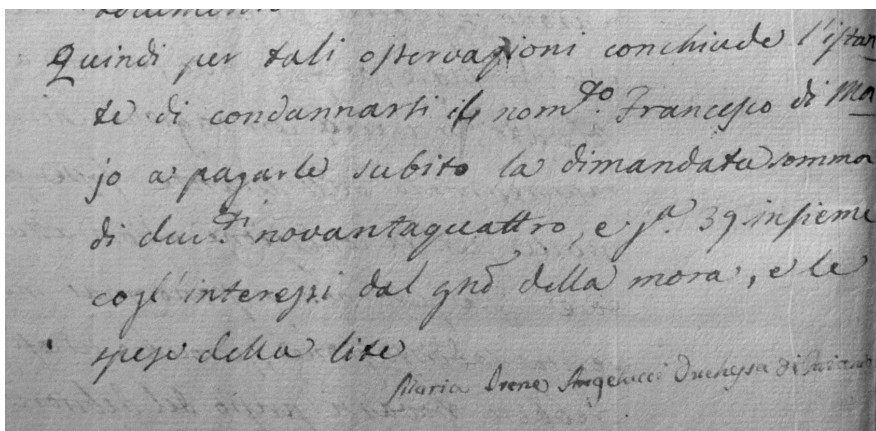 Quindi per tali osservazioni conchiude l'istan
te di condannarsi il nom.to Francesco di Ma
jo a pagarle subito la dimandata somma
di duc.ti novantaquattro, e g.a 39 insieme
cogl'interessi dal gno della mora, e le
spese della lite
Maria Irene Angelucci Duchessa di